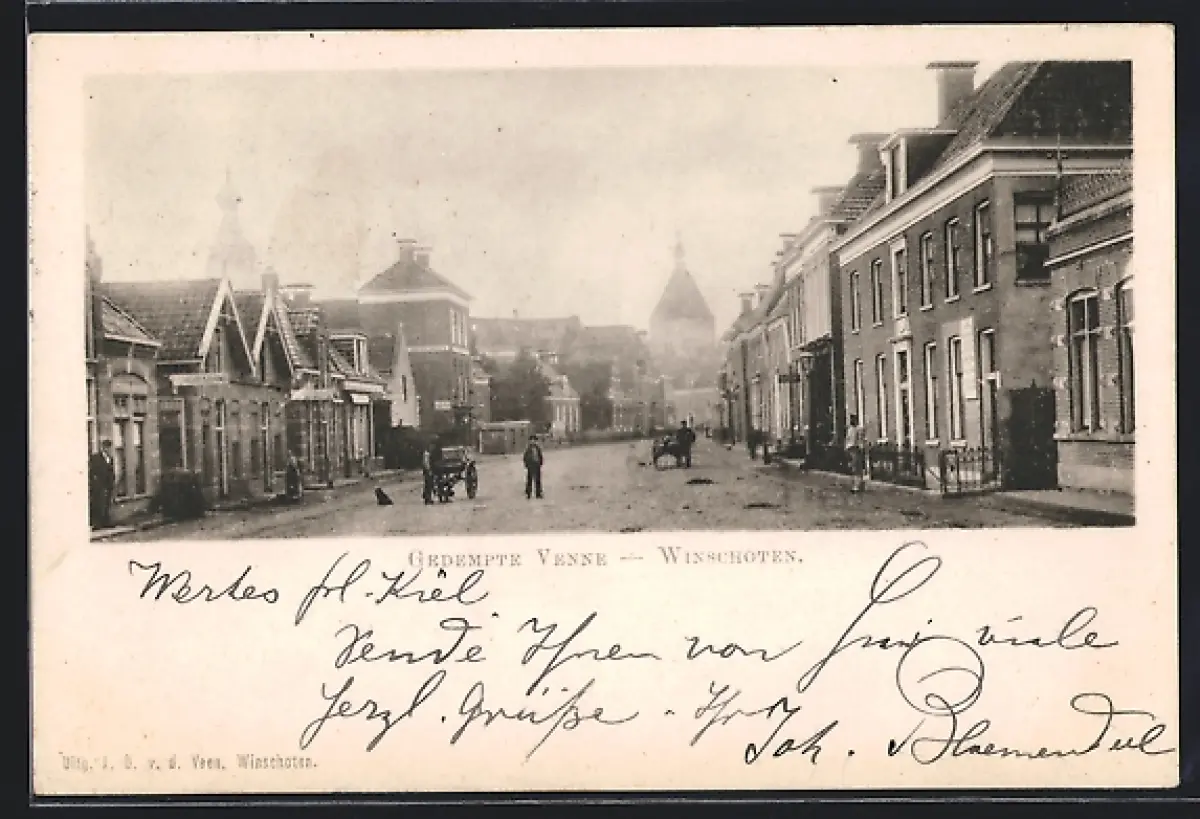 GEDEMPTE VENNE — WINSCHOTEN.
Wertes frl. Kiel
Sende Ihnen von hier viele
herzl. Grüße. Ihr
Joh. Bloemendal
Uitg. J. D. v. d. Veen, Winschoten.